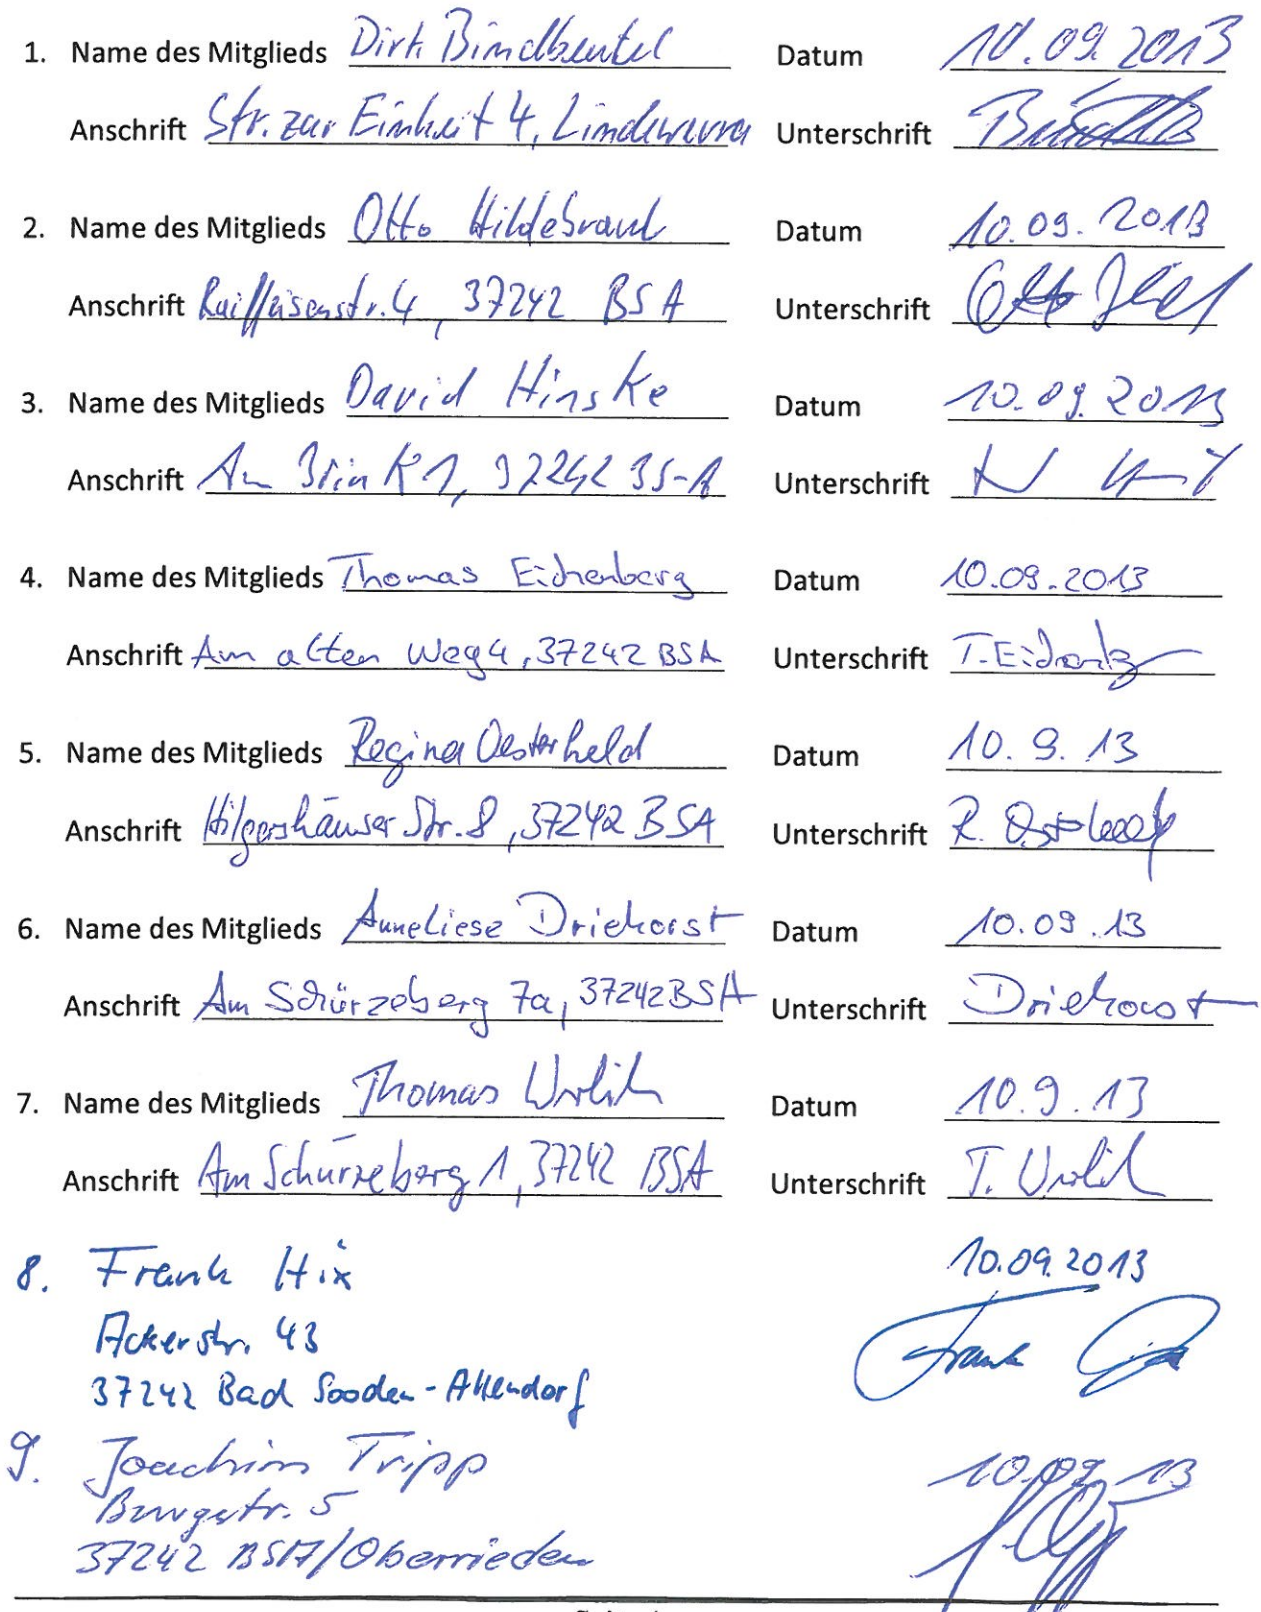 1. Name des Mitglieds Dirk Bindbeutel Datum 10.09.2013
Anschrift Str. zur Einheit 4, Lindewerra Unterschrift
2. Name des Mitglieds Otto Hildebrand Datum 10.09.2013
Anschrift Raiffeisenstr. 4, 37242 BSA Unterschrift Otto
3. Name des Mitglieds David Hinske Datum 10.09.2013
Anschrift Am Brink 1, 37242 BS-A Unterschrift
4. Name des Mitglieds Thomas Eichenberg Datum 10.09.2013
Anschrift Am alten Weg 4, 37242 BSA Unterschrift T. Eichenberg
5. Name des Mitglieds Regina Oesterheld Datum 10.9.13
Anschrift Hilgershäuser Str. 8, 37242 BSA Unterschrift R. Oesterheld
6. Name des Mitglieds Anneliese Driehorst Datum 10.09.13
Anschrift Am Schürzeberg 7a, 37242 BSA Unterschrift Driehorst
7. Name des Mitglieds Thomas Urlich Datum 10.9.13
Anschrift Am Schürzeberg 1, 37242 BSA Unterschrift T. Urlich
8. Frank Hix 10.09.2013
Ackerstr. 43 Frank
37242 Bad Sooden-Allendorf
9. Joachim Tripp 10.09.13
Burgstr. 5
37242 BSA/Oberrieden